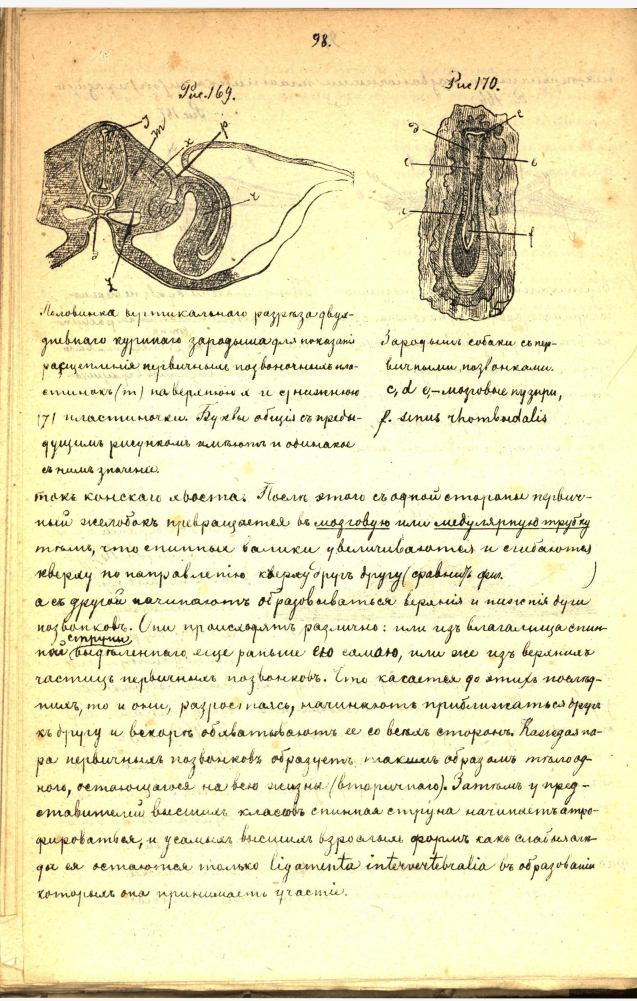 98.
Рис. 169.
Рис 170.
Половинка вертикальнаго разрѣза двух-
дневнаго куринаго зародыша для показанія
расщепленія первичныхъ позвоночныхъ пла-
стинокъ (m) на верхнюю x и нижнюю
(7) пластиночки. Буквы общія съ преды-
дущимъ рисункомъ имѣютъ и одинакое
съ нимъ значеніе.
Зародышъ собаки съ пер-
вичными позвонками.
c, d e,—мозговые пузыри,
f. sinus rhomboidalis
токъ конскаго хвоста. Послѣ этого съ одной стороны первич-
ный желобокъ превращается въ мозговую или медулярную трубку
тѣмъ, что спинные валики увеличиваются и сгибаются
кверху по направленію кверху другъ другу (сравнить фиг. )
а съ другой начинаютъ образовываться верхнія и нижнія дуги
позвонковъ. Они происходятъ различно: или изъ влагалища спин-
ной струны выдѣленнаго еще раньше ею самою, или же изъ верхнихъ
частицъ первичныхъ позвонковъ. Что касается до этихъ послѣд-
нихъ, то и они, разростаясь, начинаютъ приближаться другъ
къ другу и вскорѣ обхватываютъ ее со всѣхъ сторонъ. Каждая па-
ра первичныхъ позвонковъ образуетъ такимъ образомъ тѣло од-
ного, остающагося на всю жизнь (вторичнаго). Затѣмъ у пред-
ставителей высшихъ классовъ спинная струна начинаетъ атро-
фироваться, и у самыхъ высшихъ взрослыхъ формъ какъ слабые слѣ-
ды ея остаются только ligamenta intervertebralia въ образованіи
которыхъ она принимаетъ участіе.